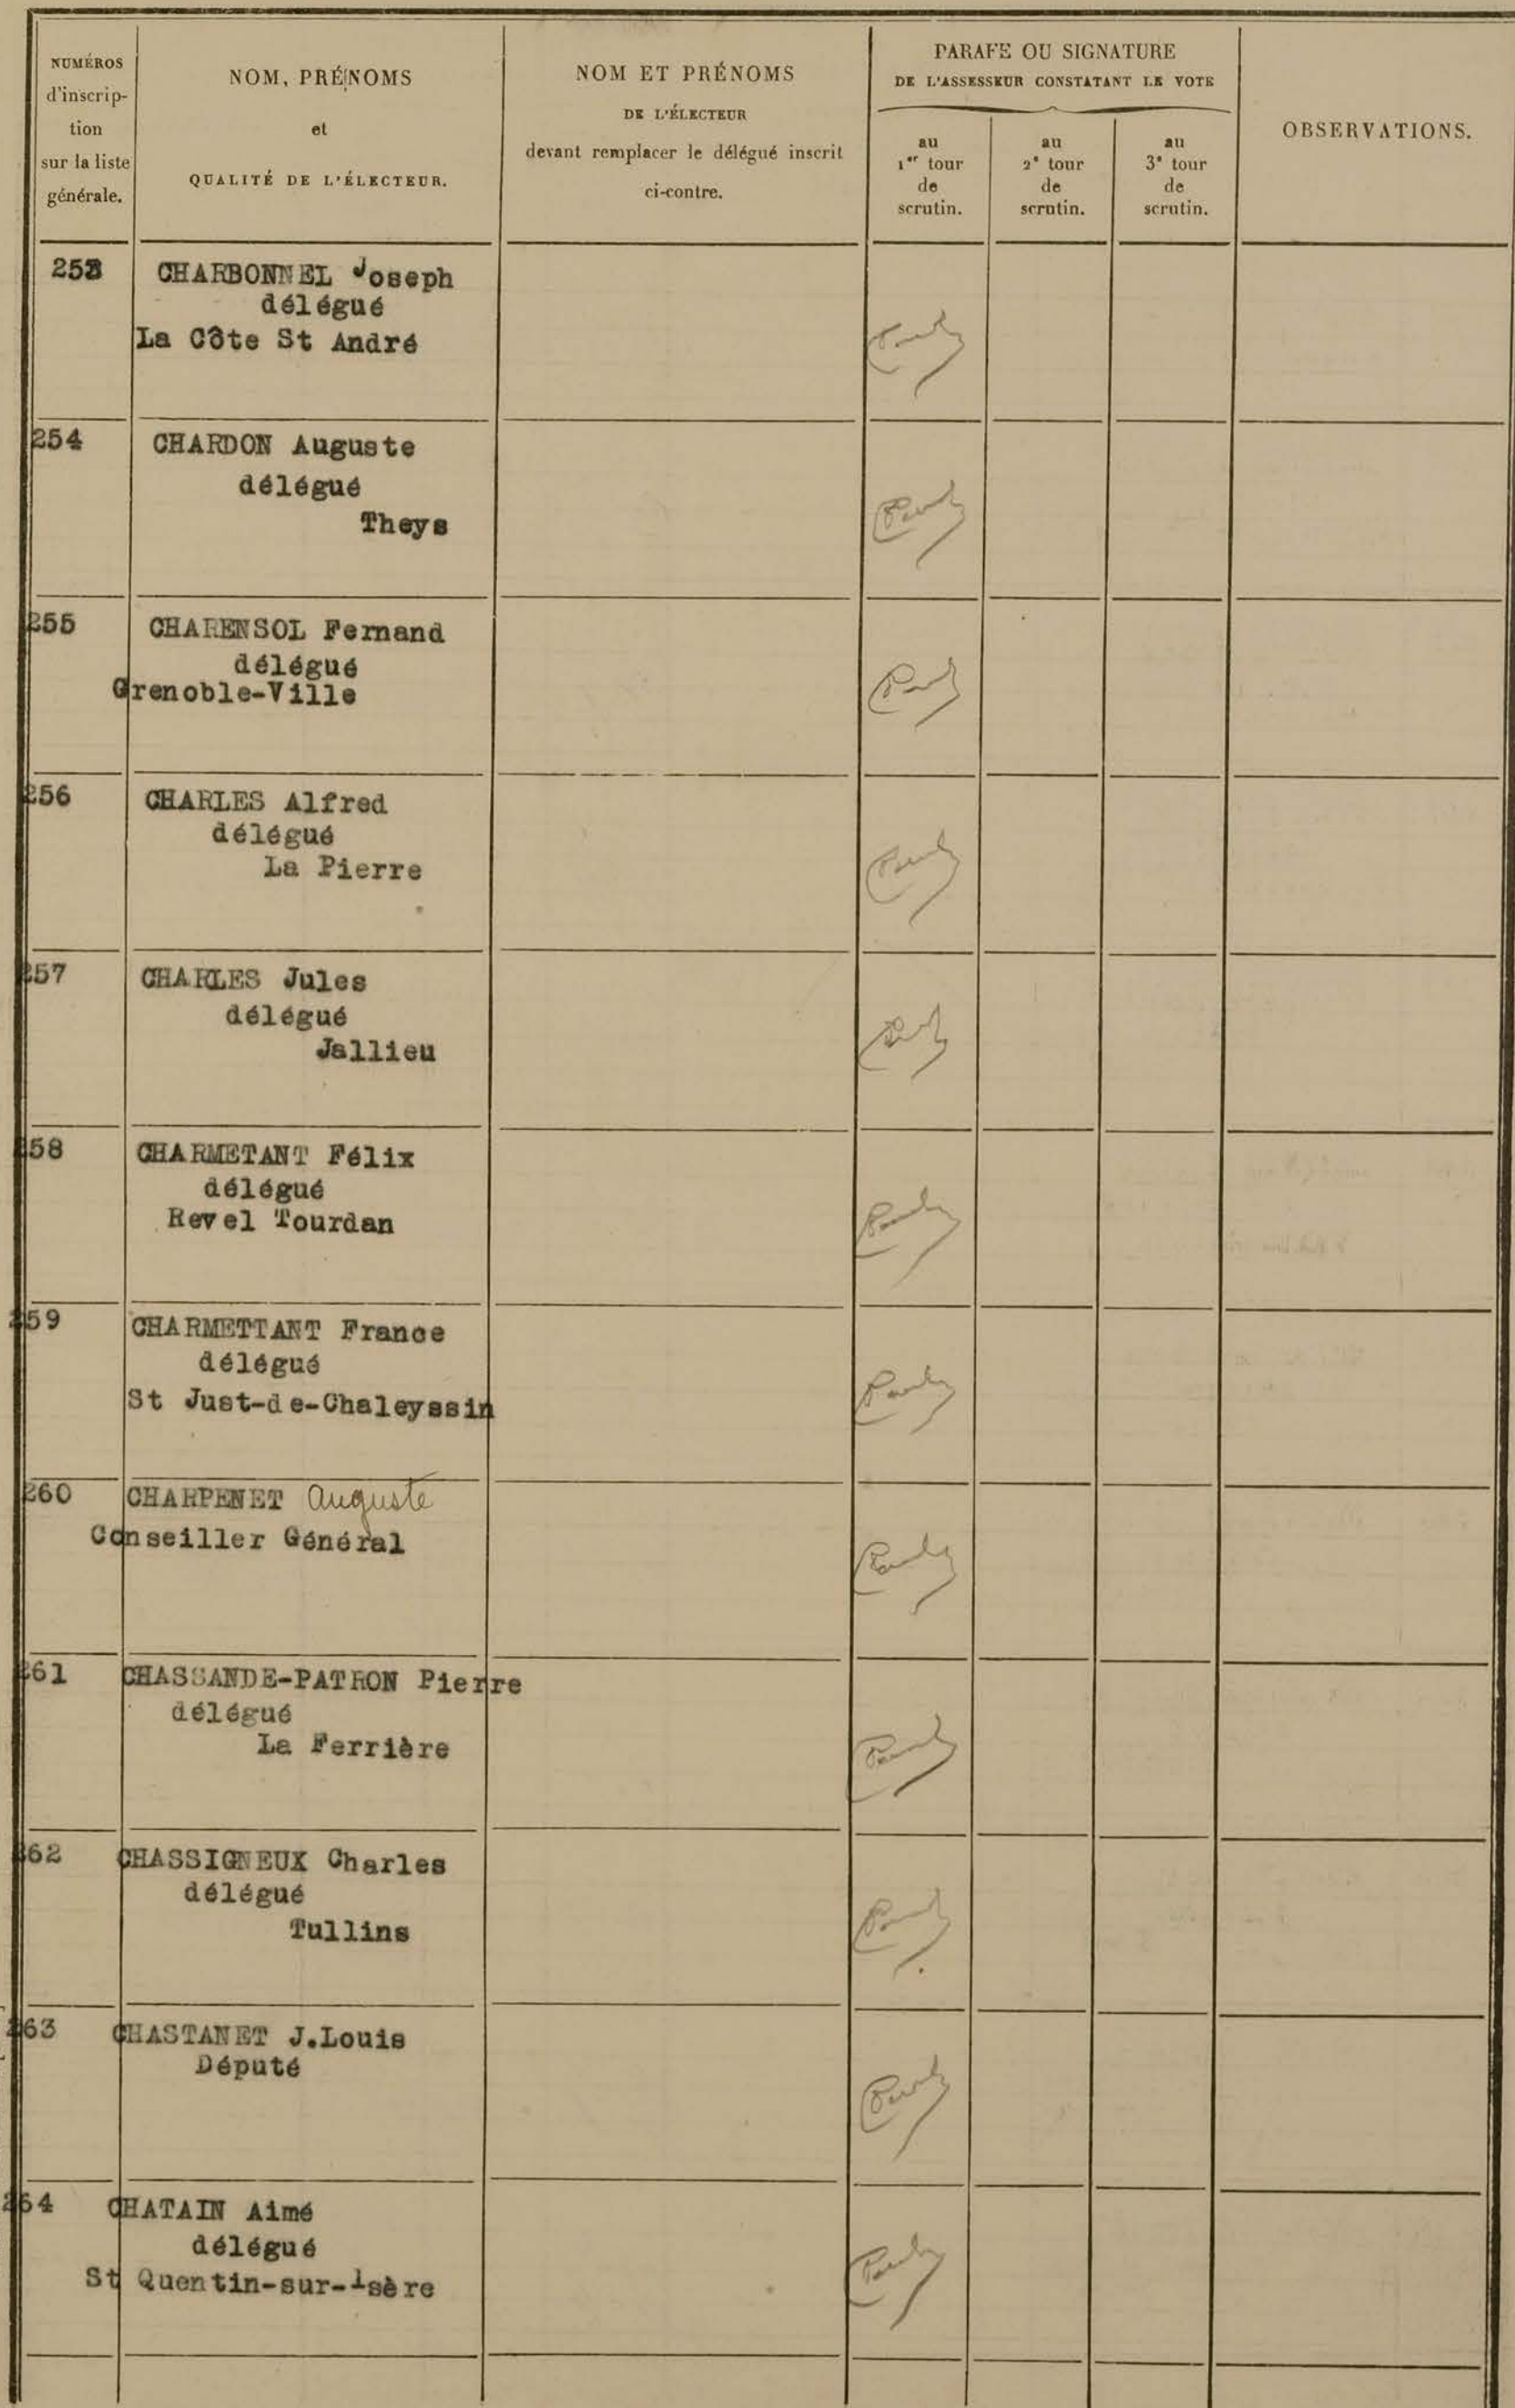 NUMÉROS
d'inscrip-
tion
sur la liste
générale.
NOM, PRÉNOMS
et
QUALITÉ DE L'ÉLECTEUR.
NOM ET PRÉNOMS
DE L'ÉLECTEUR
devant remplacer le délégué inscrit
ci-contre.
PARAFE OU SIGNATURE
DE L'ASSESSEUR CONSTATANT LE VOTE
au
1er tour
de
scrutin.
au
2e tour
de
scrutin.
au
3e tour
de
scrutin.
OBSERVATIONS.
253 CHARBONNEL Joseph
délégué
La Côte St André
254 CHARDON Auguste
délégué
Theys
255 CHARENSOL Fernand
délégué
Grenoble-Ville
256 CHARLES Alfred
délégué
La Pierre
257 CHARLES Jules
délégué
Jallieu
258 CHARMETANT Félix
délégué
Revel Tourdan
259 CHARMETTANT France
délégué
St Just-de-Chaleyssin
260 CHARPENET Auguste
Conseiller Général
261 CHASSANDE-PATRON Pierre
délégué
La Ferrière
262 CHASSIGNEUX Charles
délégué
Tullins
263 CHASTANET J.Louis
Député
264 CHATAIN Aimé
délégué
St Quentin-sur-Isère